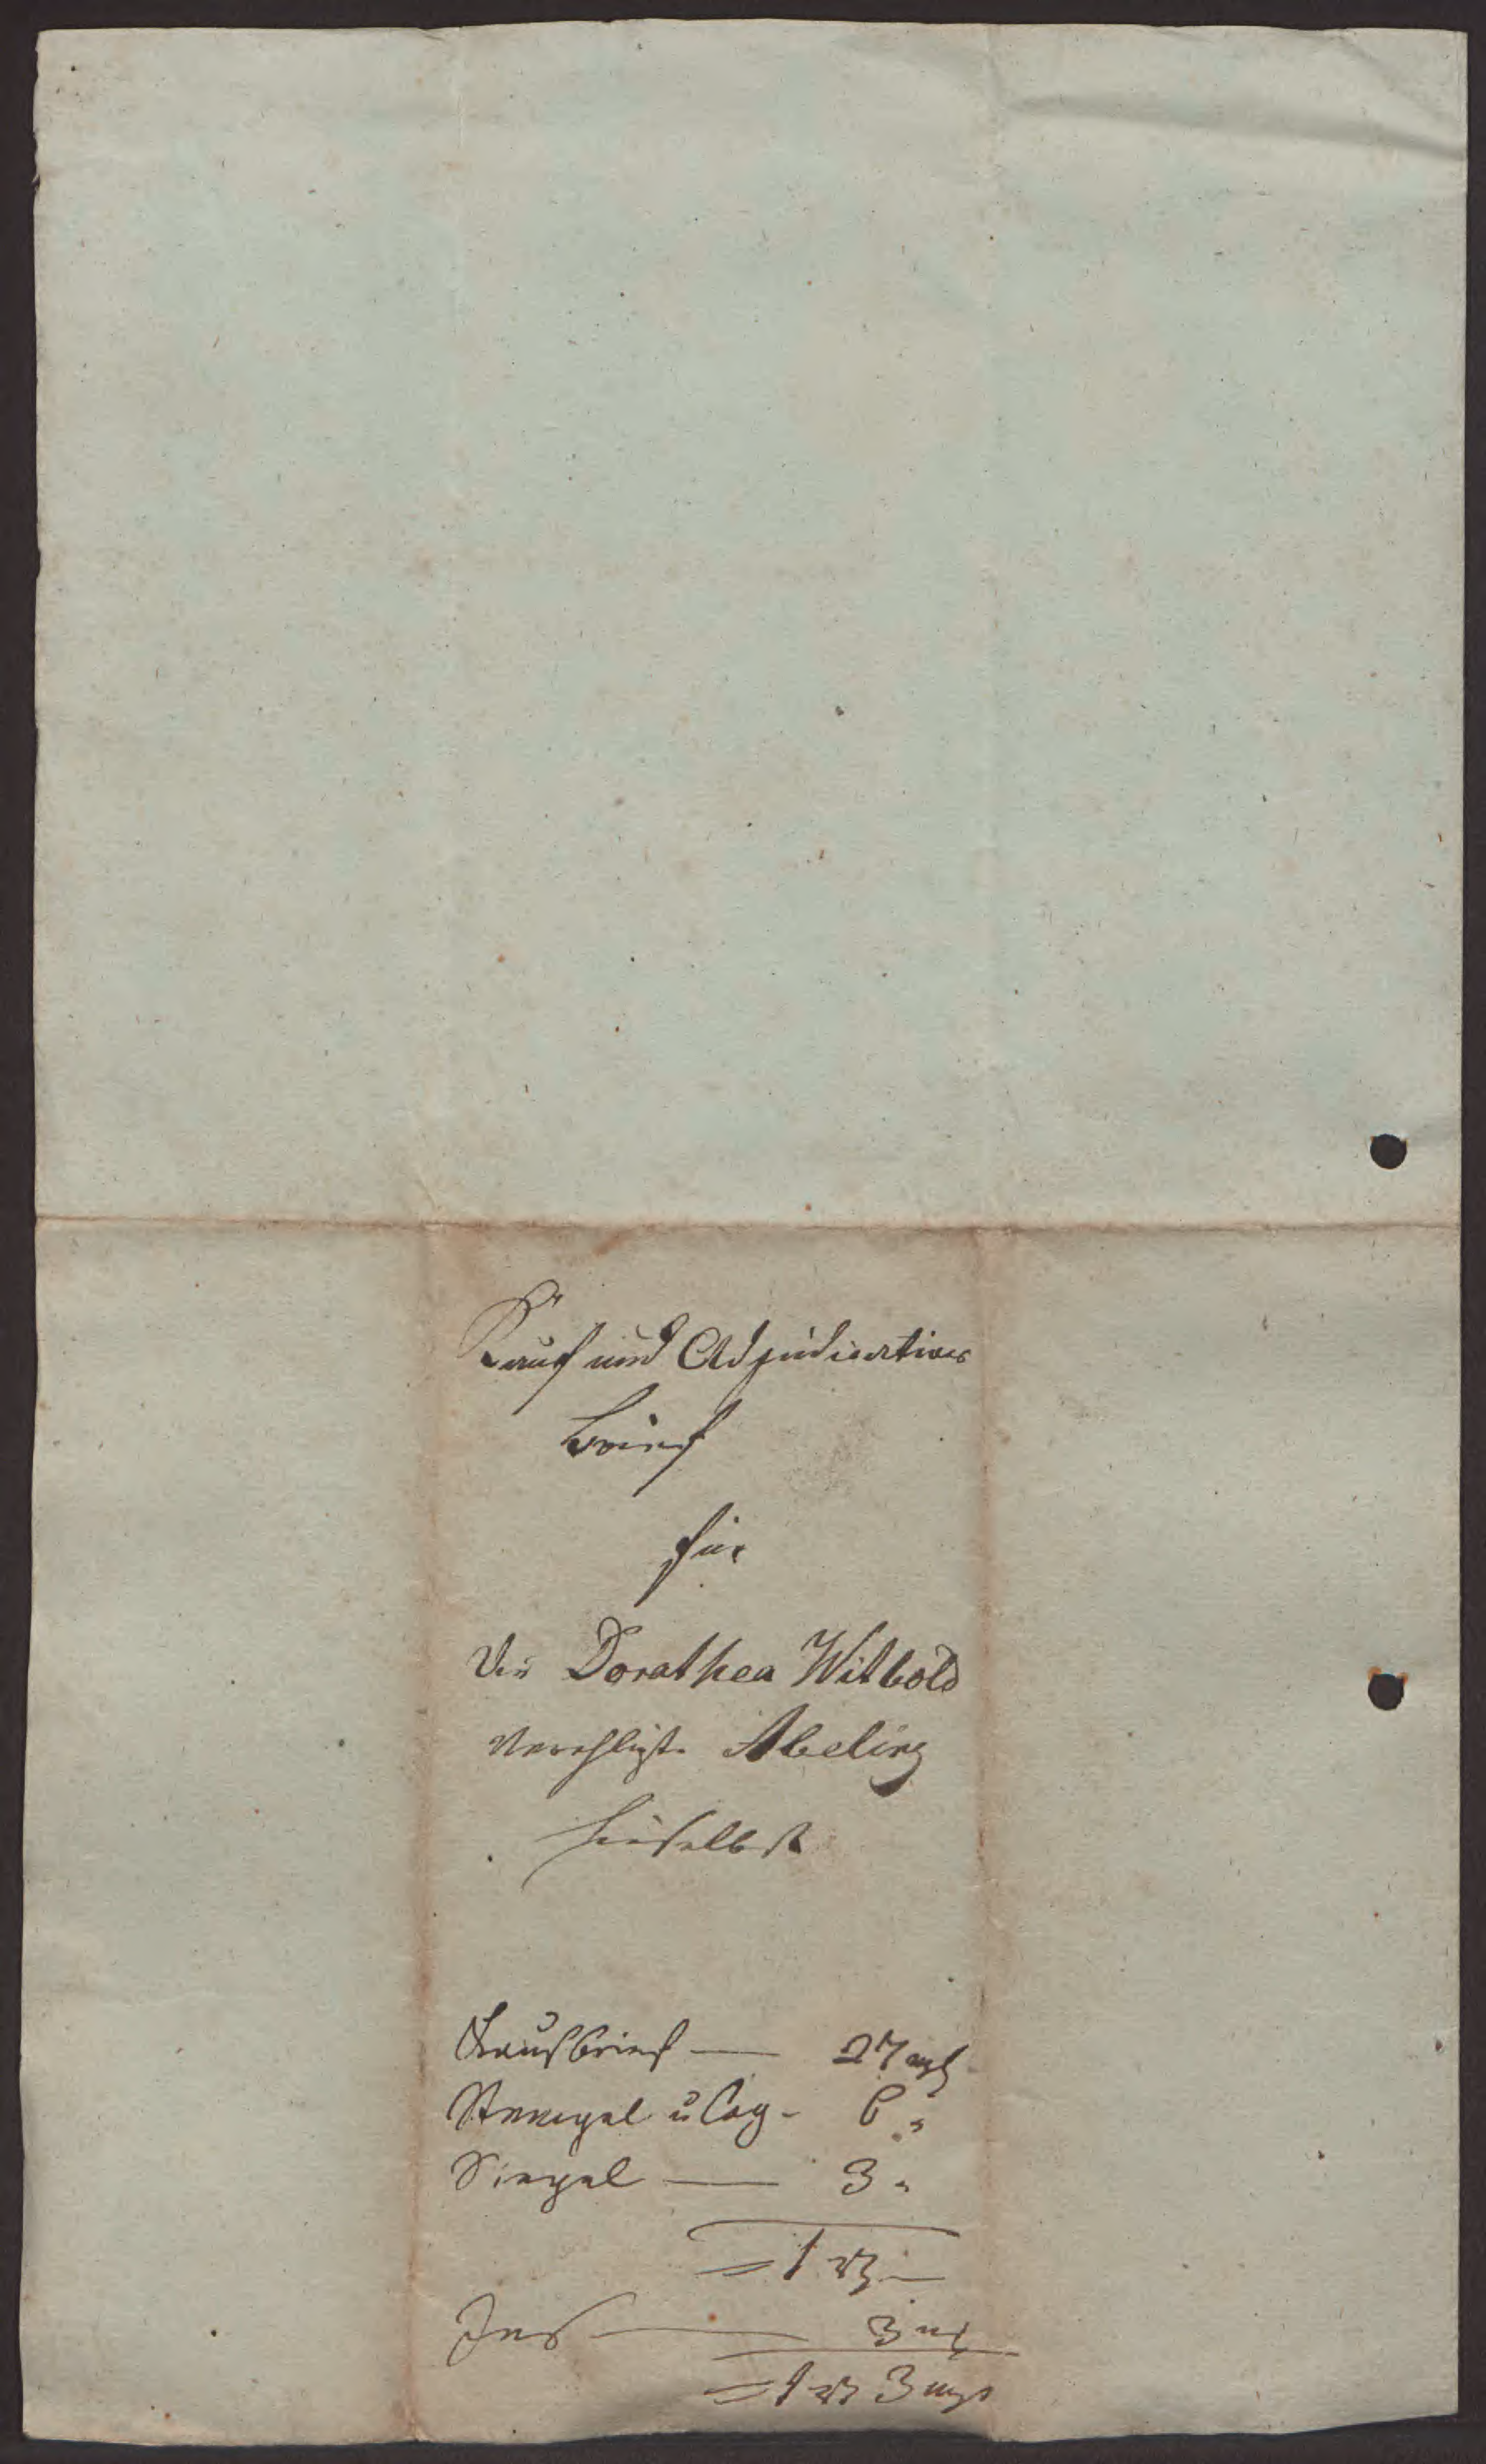 Kauf und Adjudications
brief
für
die Dorathea Witbold
verehligte Abeling
hieselbst
Kaufbrief — 27 mgl
Stempel u Cog - 6 "
Siegel — 3 "
= 1 rt —
3 mg
= 1 rt 3 mgl